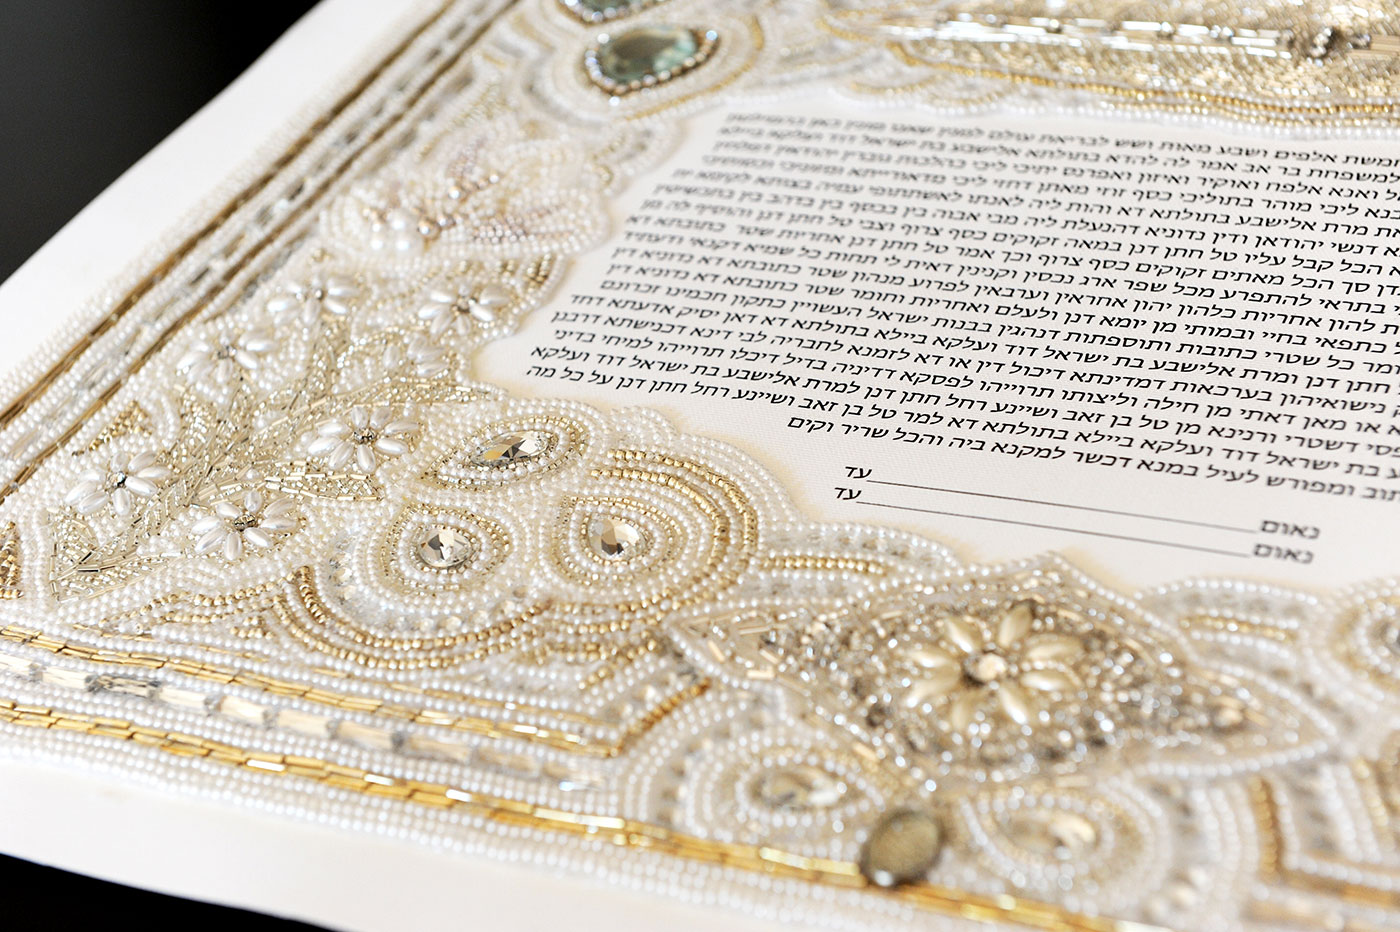 חמשת אלפים ושבע מאות ושש לבריאת עולם למנין שאנו מונין כאן
למשפחת בר אב אמר לה להדא בתולתא אלישבע בת ישראל דוד ועלקא ביילא
ואנא אלפח ואוקיר ואיזון ואפרנס יתיכי ליכי כהלכות גוברין יהודאין
ליכי מוהר בתוליכי כסף זוזי מאתן דחזי ליכי מדאורייתא ומזוניכי וכסותיכי
מרת אלישבע בתולתא דא והות ליה לאנתו לאשתתופי עמיה בצוותא לקימא
דנשי יהודאן ודין נדוניא דהנעלת ליה מבי אבוה בין בכסף בין בדהב בין בתכשיטין
הכל קבל עליו טל חתן דנן במאה זקוקים כסף צרוף וצבי טל חתן דנן והוסיף לה מן
סך הכל מאתים זקוקים כסף צרוף וכך אמר טל חתן דנן אחריות שטר כתובתא דא
בתראי להתפרע מכל שפר ארג נכסין וקנינין דאית לי תחות כל שמיא דקנאי ודעתיד
להון אחריות כלהון יהון אחראין וערבאין לפרוע מנהון שטר כתובתא דא נדוניא דין
כתפאי בחיי ובמותי מן יומא דנן ולעלם ואחריות וחומר שטר כתובתא דא נדוניא דין
כל שטרי כתובות ותוספתות דנהגין בבנות ישראל העשויין כתקון חכמינו זכרונם
חתן דנן ומרת אלישבע בת ישראל דוד ועלקא ביילא בתולתא דא דאן יסיק אדעתא דחד
נישואיהון בערכאות דמדינתא דיכול דין או דא לזמנא לחבריה לבי דינא דכנישתא דרבנן
או מאן דאתי מן חילה וליצותו תרוייהו לפסקא דדיניה בדיל דיכלו תרוייהו למיחי בדיני
דשטרי ורנינא מן טל בן זאב ושיינע רחל חתן דנן למרת אלישבע בת ישראל דוד ועלקא
בת ישראל דוד ועלקא ביילא בתולתא דא למר טל בן זאב ושיינע רחל חתן דנן על כל מה
ומפורש לעיל במנא דכשר למקנא ביה והכל שריר וקים
נאום עד
נאום עד